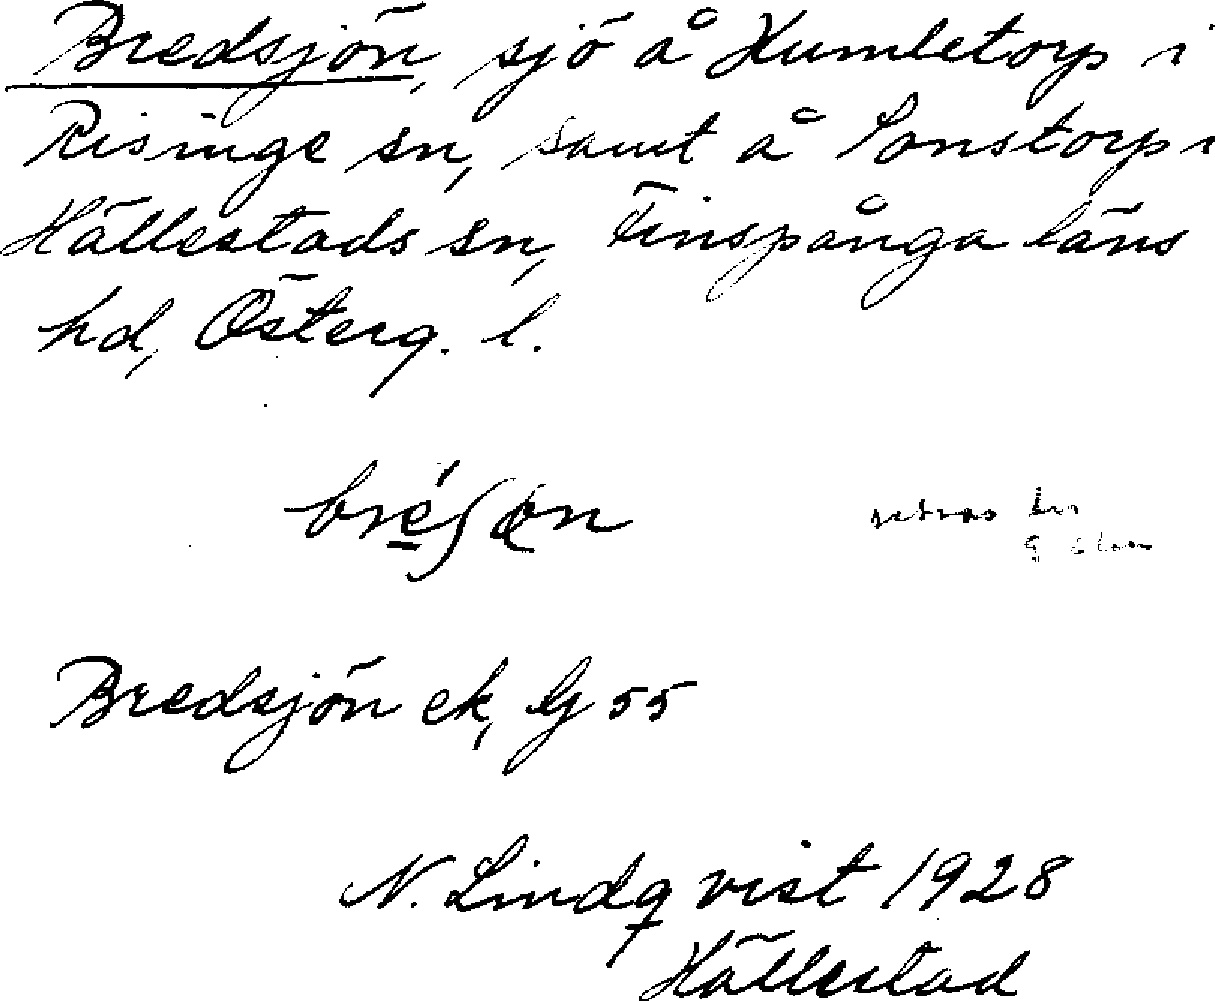 Bredsjön, sjö å Humletorp i
Risinge sn, samt å Sonstorp i
Hällestads sn, Finspånga läns
hd, Österg. l.
Bredsjön ek, G 55
N. Lindqvist 1928
Hällestad